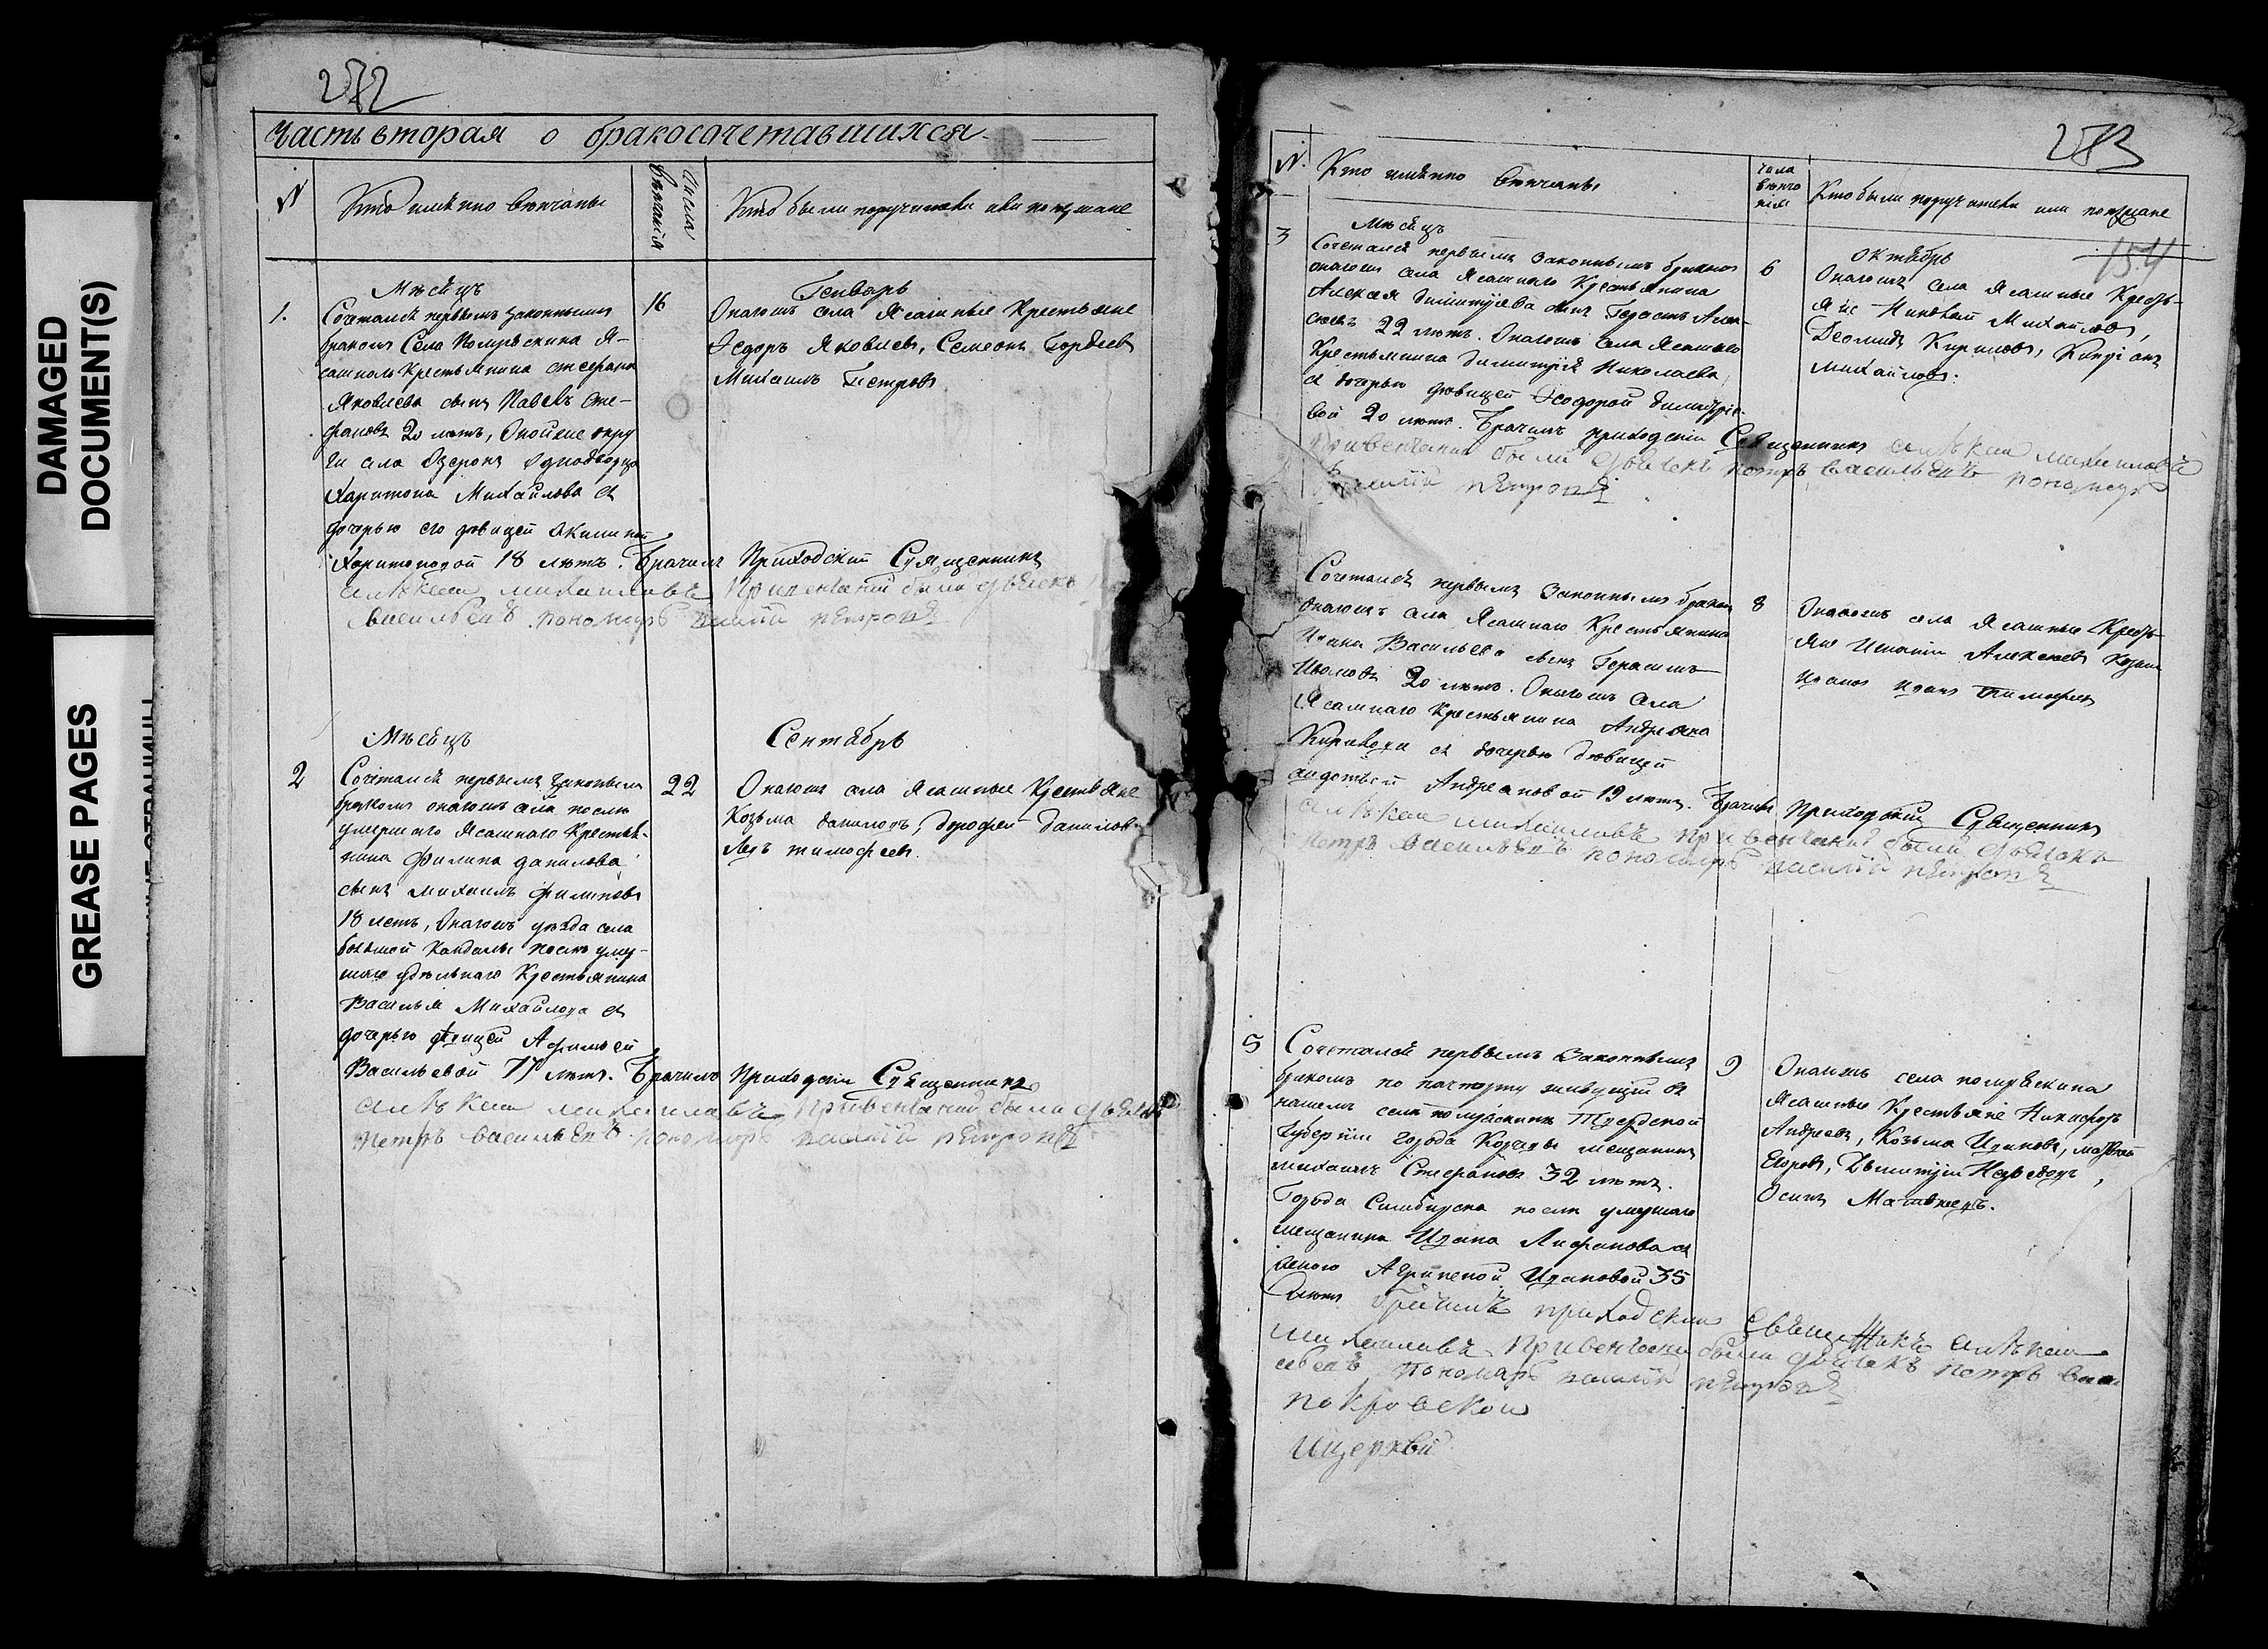 DAMAGED
DOCUMENT(S)
GREASE PAGES
282
Часть вторая о бракосочетавшихся
N
Кто имянно венчаны
Числа венчанія
Кто были поручители или поезжане
Месяцъ
Генварь
1.
Сочетался первымъ законнымъ
бракомъ Села Помряскина Я-
сашнаго Крестьянина Стефана
Яковлева сынъ Павелъ Сте-
фановъ 20 летъ, Оной же окру
ги села Озерокъ Однодворца
Харитона Михайлова съ
дочерью его девицей Акилиной
Харитоновой 18 летъ. Брачилъ Приходский Священникъ
алѣксеи михаиловъ Привенчаніи были дьячекъ
васильевъ пономарь василіи петровъ
16
Онагожъ села Ясашные Крестьяне
Федоръ Яковлевъ, Семеонъ Гордеевъ
Михаилъ Петровъ
Месяцъ
Сентябрь
2
Сочетался первымъ законнымъ
бракомъ онагожъ села после
умершаго Ясашнаго Крестья-
нина Филипа данилова
сынъ михаилъ филиповъ
18 летъ, Онагожъ уезда села
большой Кандалы после умер-
шаго удельнаго Крестьянина
Василья Михайлова съ
дочерью девицей Афимьей
Васильевой 17 летъ. Брачилъ Приходскій Священникъ
алѣксеи михаиловъ Привенчаніи были дьячекъ
петръ васильевъ пономарь василіи петровъ
22
Онагожъ села Ясашные Крестьяне
Козьма даниловъ, дорофей даниловъ
тимофеевъ.
283
N.
Кто имянно венчаны
числа венчанія
Кто были поручители или поезжане
154
Месяцъ
октябрь
3
Сочетался первымъ законнымъ бракомъ
онагожъ села Ясашнаго Крестьянина
Алексея димитріева сынъ Герасимъ Алек-
сеевъ 22 летъ. Онагожъ села Ясашнаго
Крестьянина димитрія Николаева
съ дочерью девицей Феодорой димитріе-
вой 20 летъ. Брачилъ приходскій Священникъ алѣксеи михаиловъ
Привенчаніи были дьячекъ петръ васильевъ пономарь
василіи петровъ
6
Онагожъ села Ясашные Кресть-
яне Николай Михайловъ,
Деомидъ Кириловъ, Кипріанъ
михайловъ.
Сочетался первымъ законнымъ бракомъ
онагожъ села Ясашнаго Крестьянина
Ивана Васильева сынъ Герасимъ
Ивановъ 20 летъ. Онагожъ села
Ясашнаго Крестьянина Андреяна
Кирилова съ дочерью девицей
авдотьей Андреановой 19 летъ. Брачилъ Приходскій Священникъ
алѣксеи михаиловъ Привенчаніи были дьячекъ
петръ васильевъ пономарь василіи петровъ
8
Онагожъ села Ясашные Кресть-
яне Игнатій Алексеевъ Козма
Ивановъ Иванъ Тимофеевъ
5
Сочетался первымъ законнымъ
бракомъ по пачпорту живущій въ
нашемъ селе помряскине Тверской
губерніи города Корчевы мещанинъ
михаилъ Стефановъ 32 летъ.
Города Симбирска после умершаго
мещанина Ивана Анфанова съ
женою Агрипеной Ивановой 35
летъ брачилъ приходскии свещенникъ алѣксеи
михаиловъ Привенчаніи были дьячекъ петръ васи
льевъ пономарь василіи петровъ
покровскои
церкви
9
Онагожъ села помряскина
Ясашные Крестьяне Никифоръ
Андреевъ, Козьма Ивановъ, матвей
Егоровъ, Димитрій Нефедовъ,
Осипъ Матвеевъ.